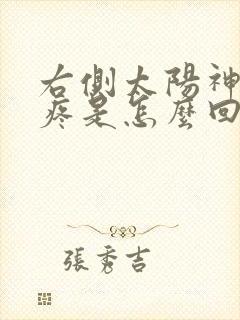 右側太陽神
疼是怎麼回
張秀吉